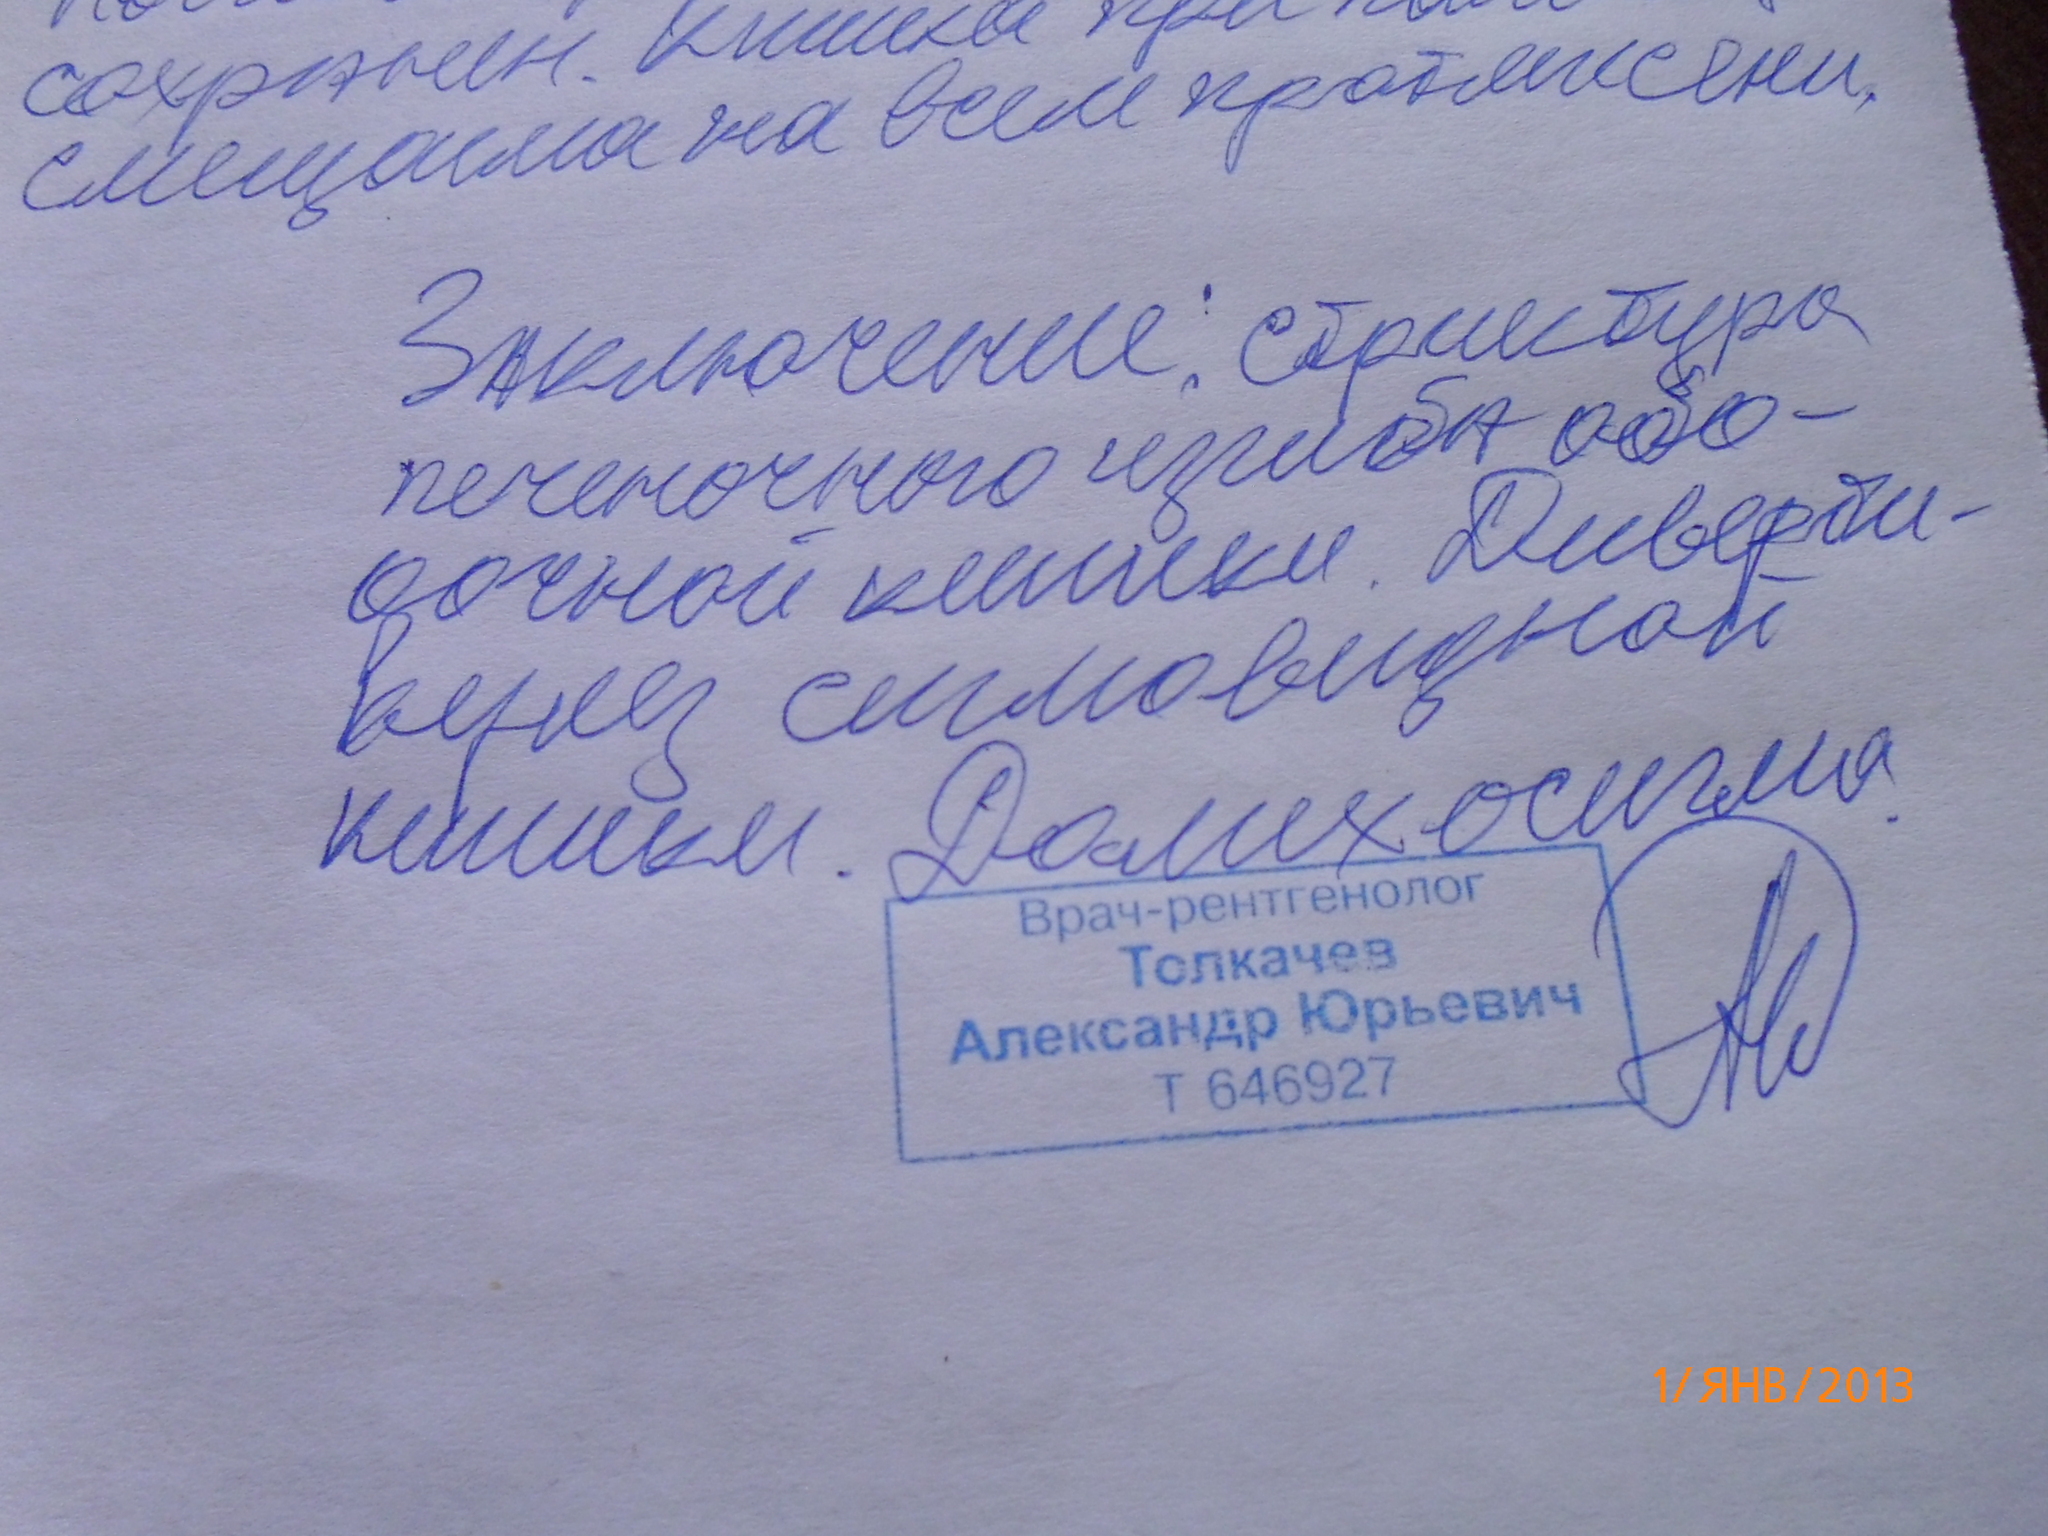 сохранен. Кишка при
смещаема на всем протяжени.
Заключение: стриктура
печеночного изгиба обо-
дочной кишки. Диверти-
кулез сигмовидной
кишки. Долихосигма.
Врач-рентгенолог
Толкачев
Александр Юрьевич
Т 646927
1/ЯНВ/2013